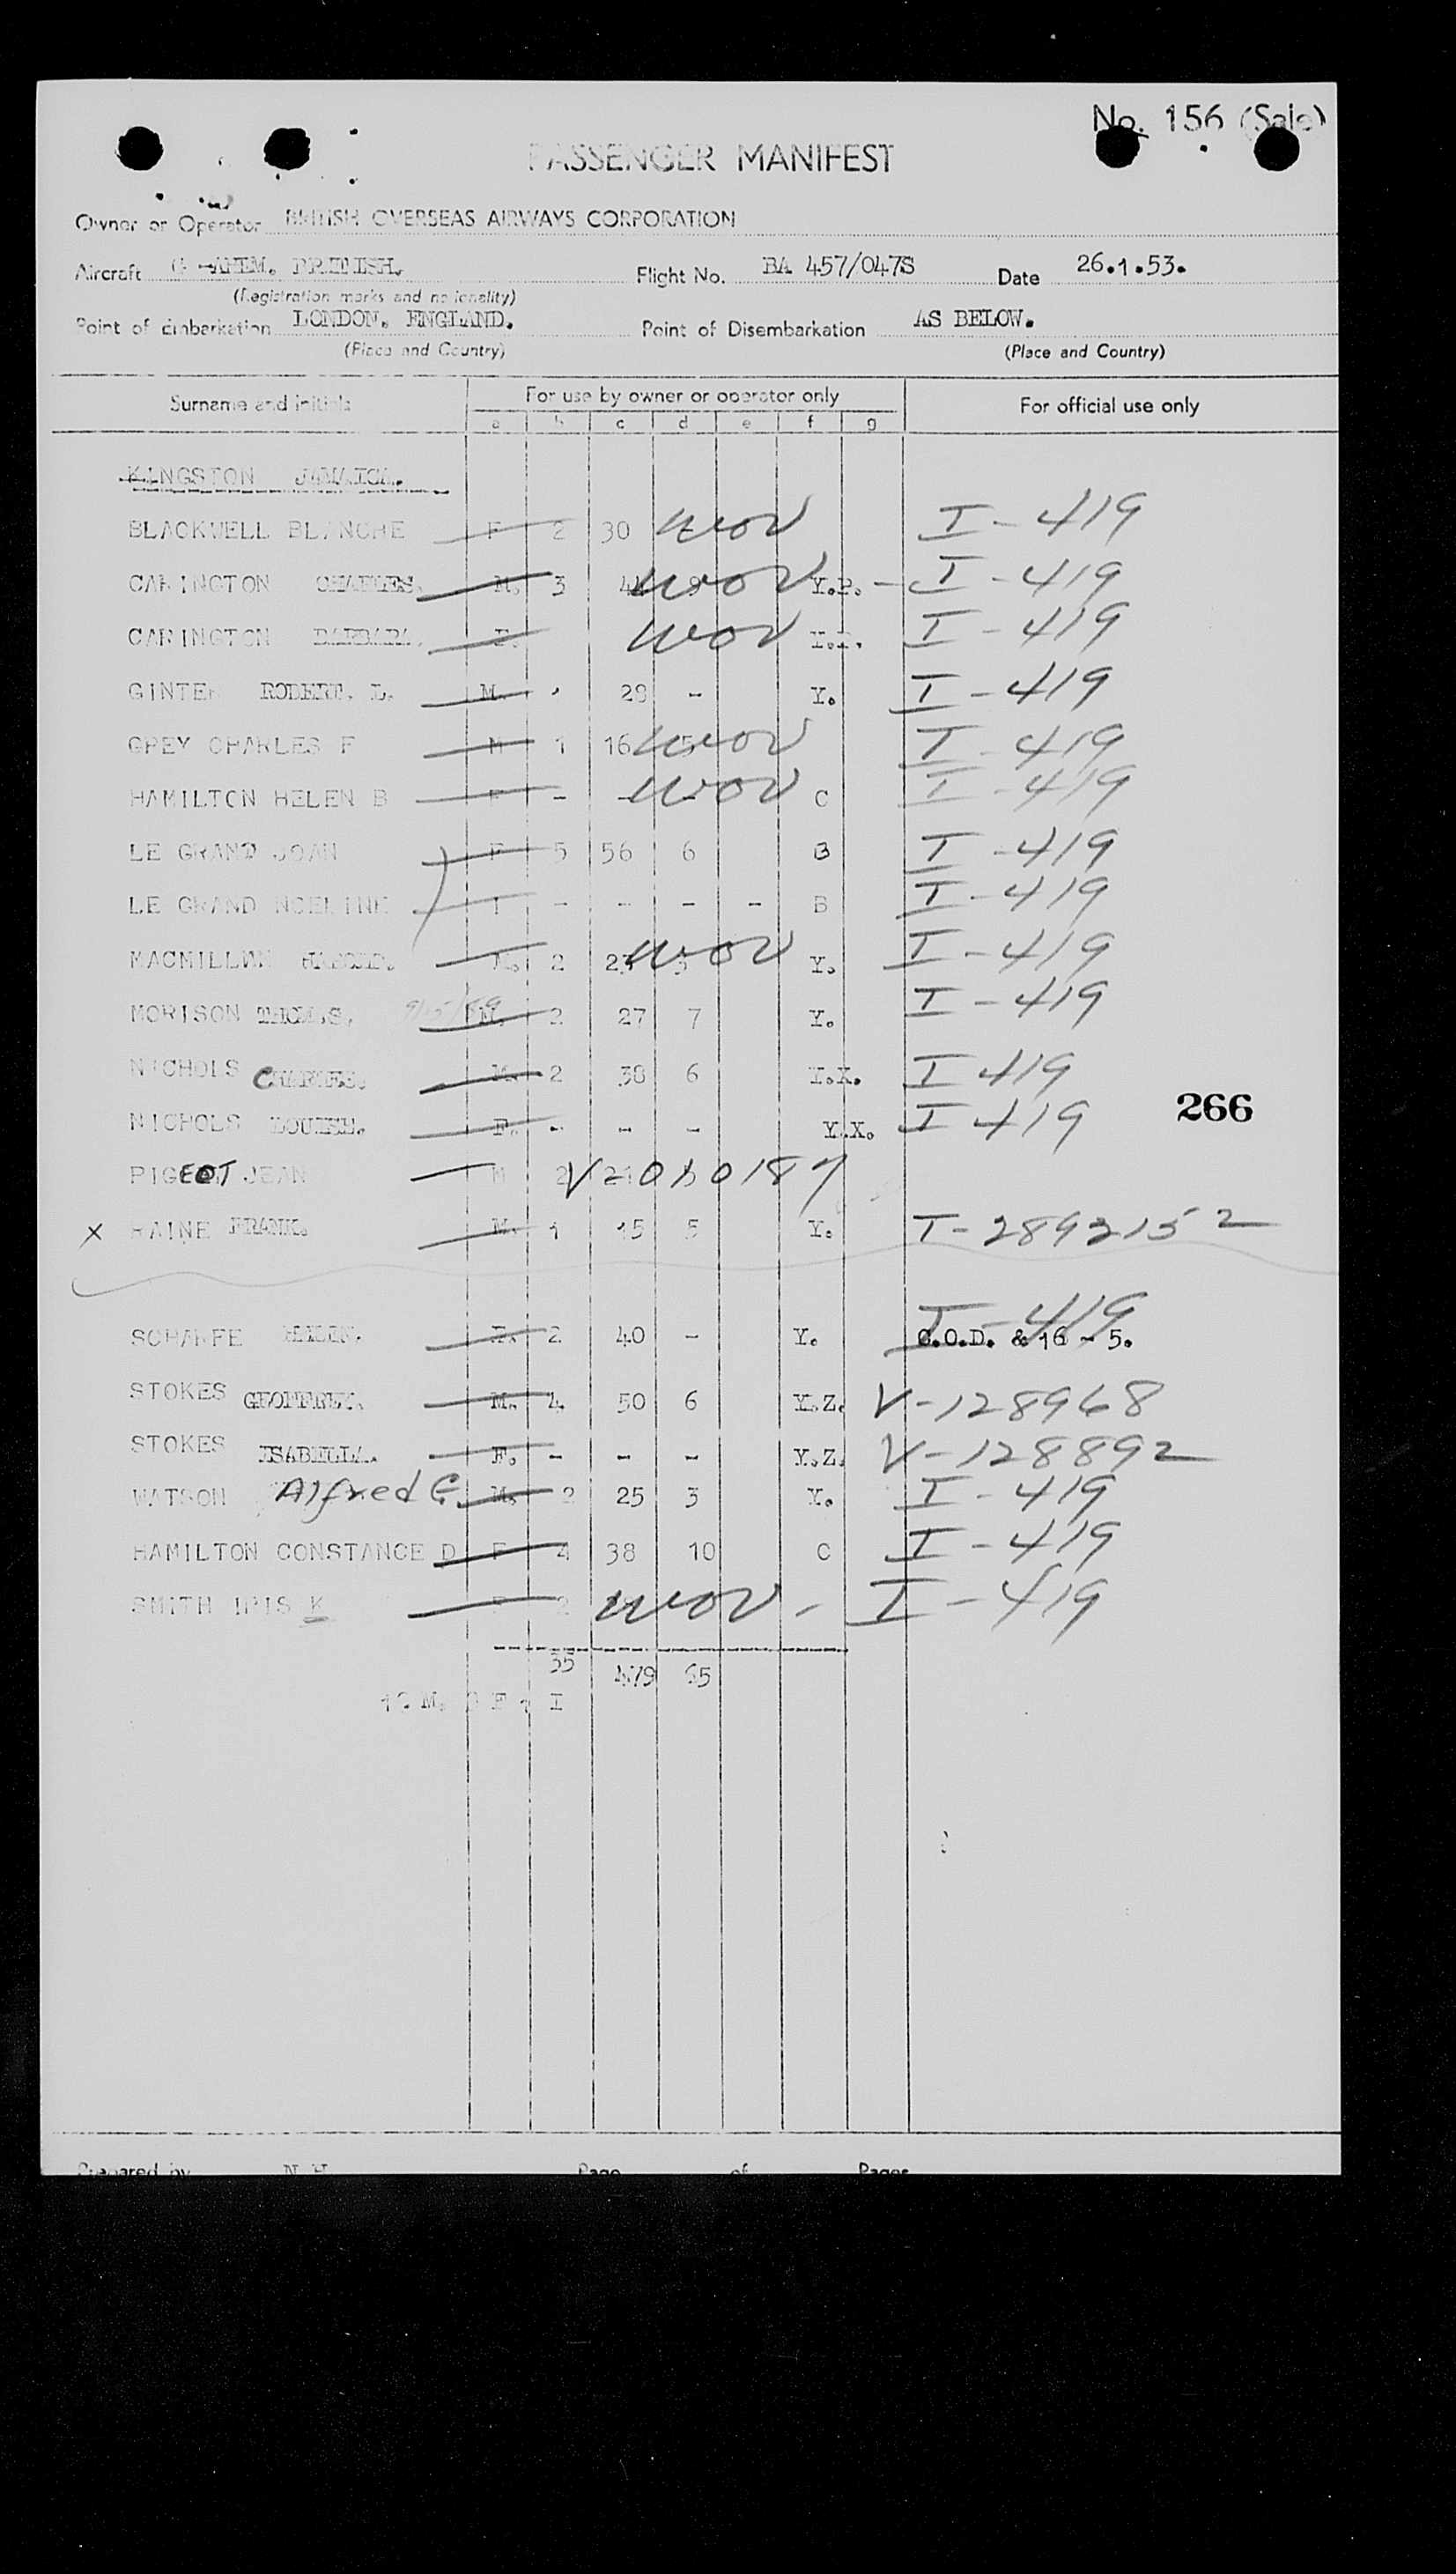 No. 156 (Sale)
PASSENGER MANIFEST
Owner or Operator BRITISH OVERSEAS AIRWAYS CORPORATION
Aircraft BRITISH. Flight No. BA 457/047S Date 26.1.53.
(Registration marks and nationality)
Point of Embarkation LONDON, ENGLAND. Point of Disembarkation AS BELOW.
(Place and Country) (Place and Country)
Surname and initials For use by owner or operator only For official use only
a b c d e f g
KINGSTON JAMAICA.
BLACKWELL BLANCHE F 2 30 WOV I-419
CARINGTON CHARLES. M. 3 WOV Y.P. - I-419
CARINGTON BARBARA. F. WOV I-419
GINTER ROBERT. L. M. 28 - Y. I-419
GREY CHARLES F M 1 16 WOV I-419
HAMILTON HELEN B F - - WOV C I-419
LE GRAND JOAN F 5 56 6 B I-419
LE GRAND NOELINE - - - - B I-419
MACMILLAN HAROLD. M. 2 WOV Y. I-419
MORISON THOMAS. M. 2 27 7 Y. I-419
NICHOLS CHARLES. M. 2 38 6 Y.X. I 419
NICHOLS LOUISE. F. - - - Y.X. I 419
266
PIGEOT JEAN M 2
X RAINE FRANK. M. 1 15 5 Y. T-2892152
SCHARFE F. 2 40 - Y. I-419
C.O.D. & 16 - 5.
STOKES GEOFFREY. M. 4 50 6 Y.Z. V-128968
STOKES ISABELLA. F. - - - Y.Z. V-128892
WATSON Alfred G. M. 2 25 3 Y. I-419
HAMILTON CONSTANCE D F 4 38 10 C I-419
SMITH IRIS K F 2 WOV - I-419
35 479 65
Prepared by N.H. Page of Pages